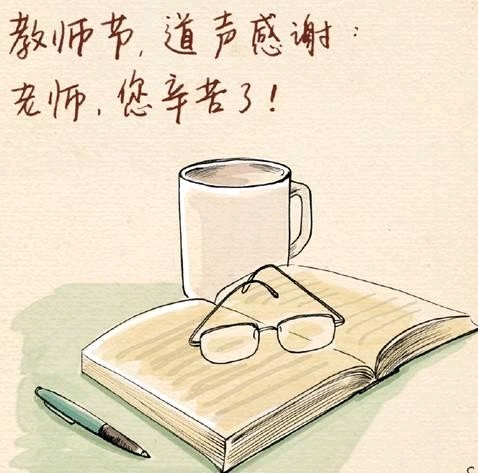 教师节,道声感谢:
老师,您辛苦了!